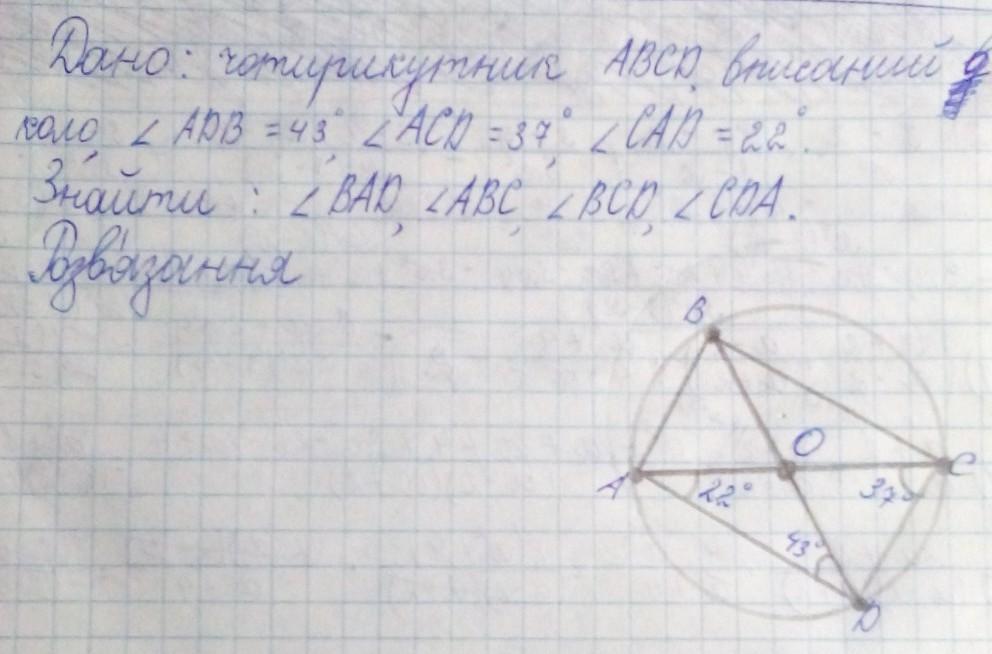 Дано: чотирикутник ABCD, вписаний у
коло, ∠ADB = 43°, ∠ACD = 37°, ∠CAD = 22°.
Знайти: ∠BAD, ∠ABC, ∠BCD, ∠CDA.
Розв'язання
B
O
A 22° 37° C
43°
D